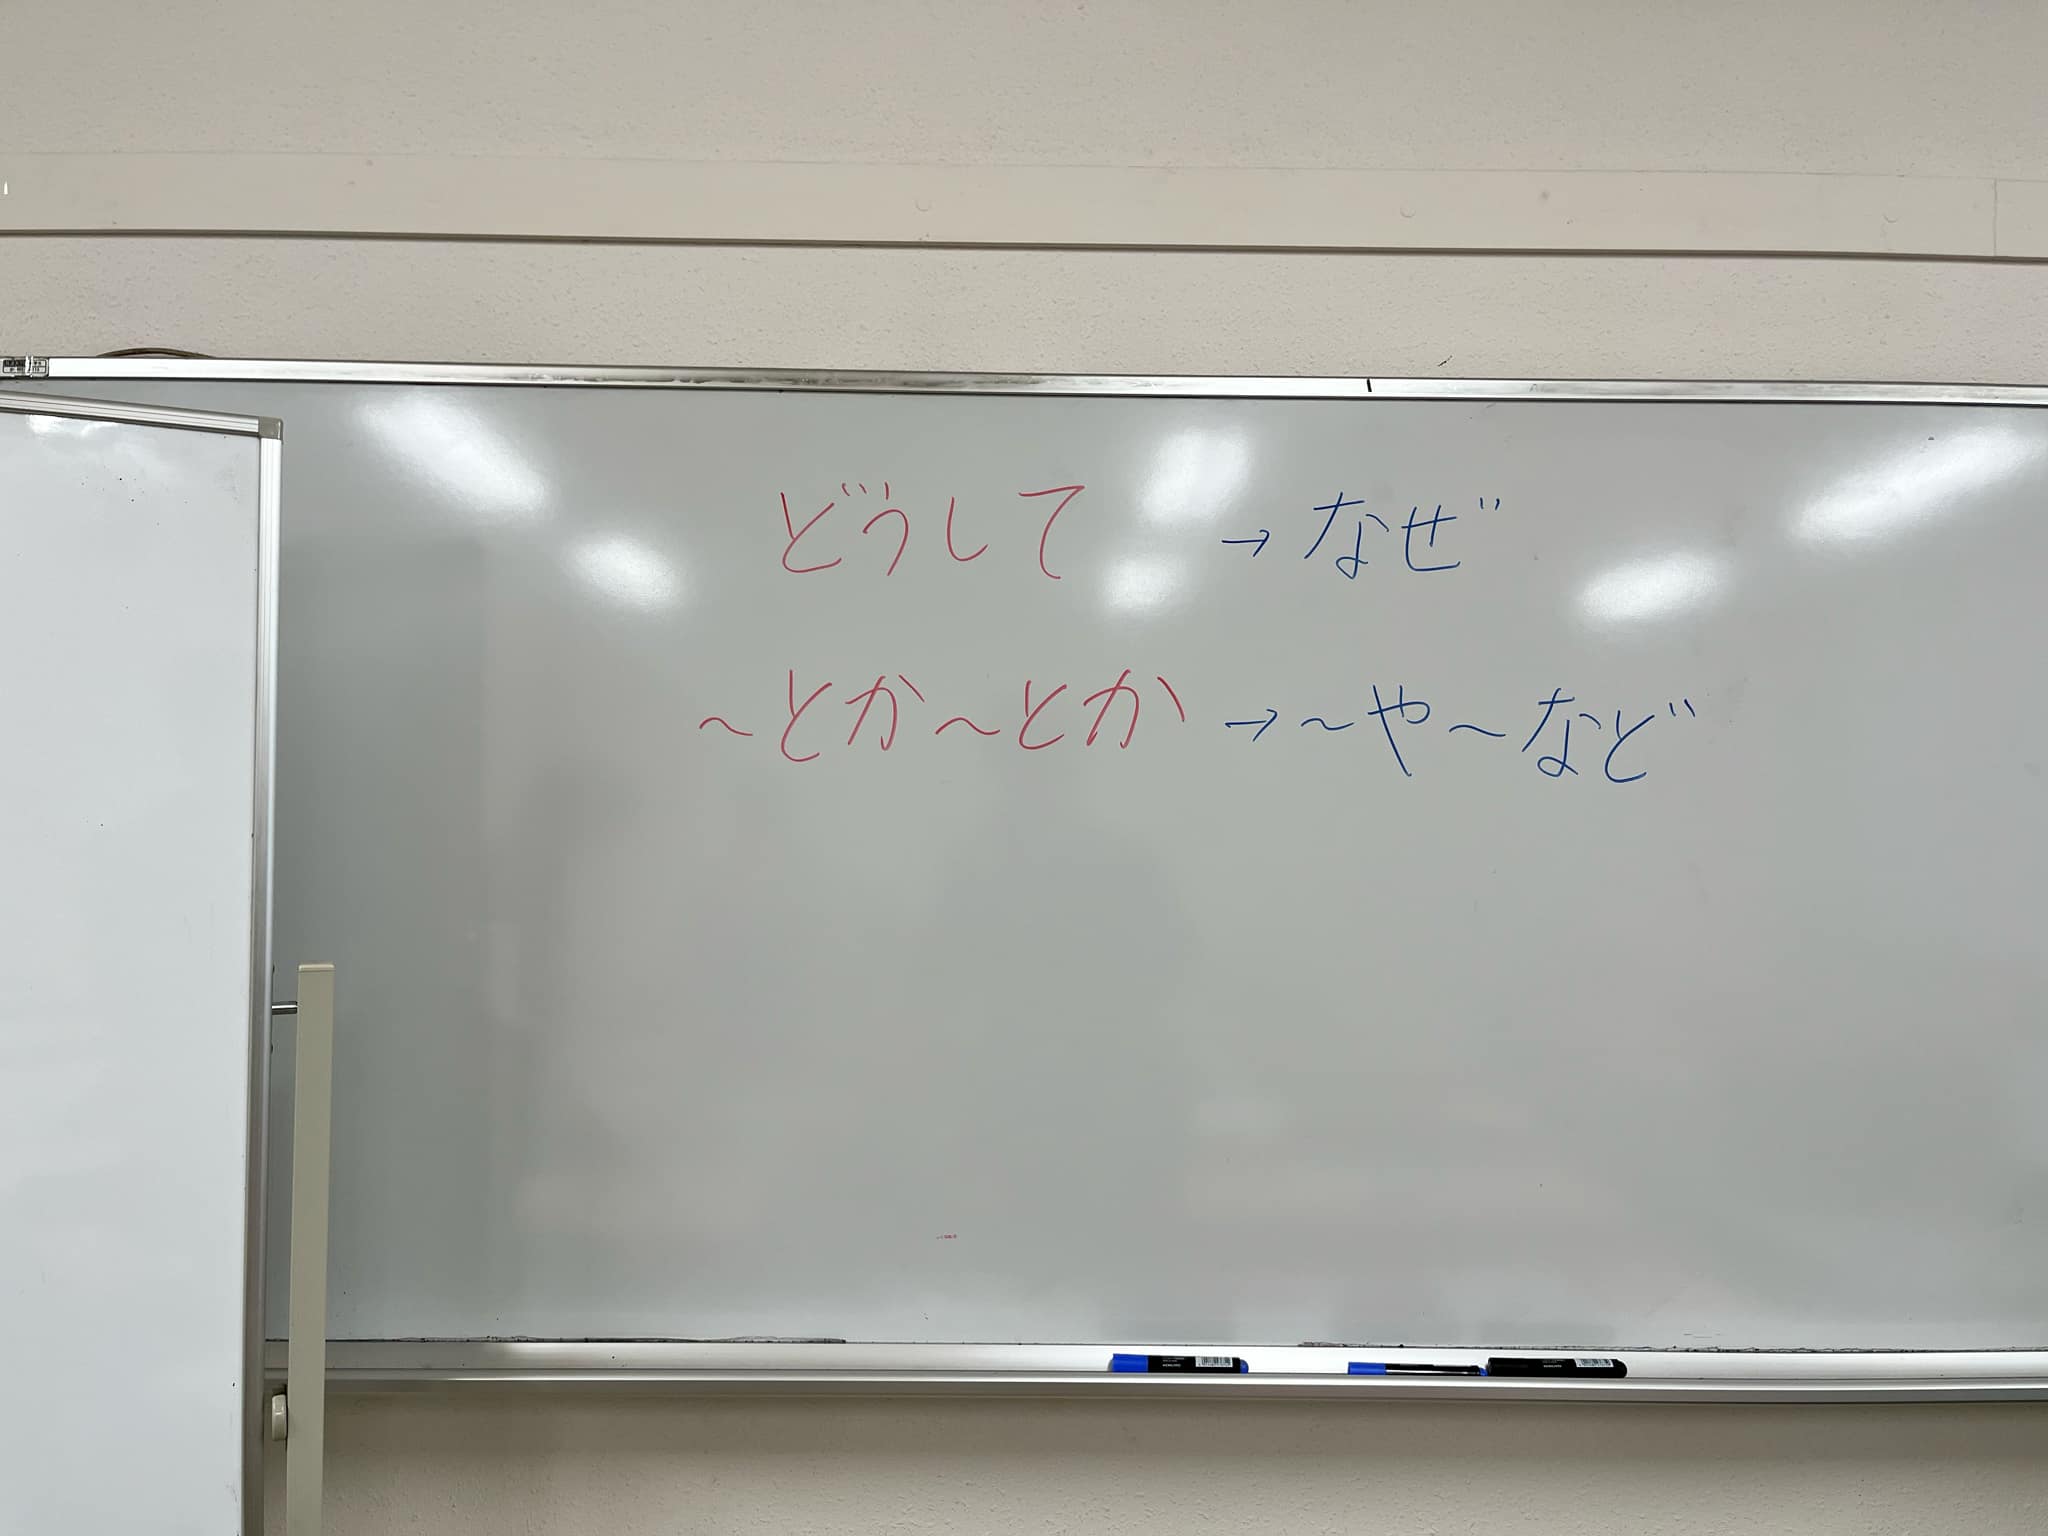 どうして → なぜ
〜とか〜とか → 〜や〜など